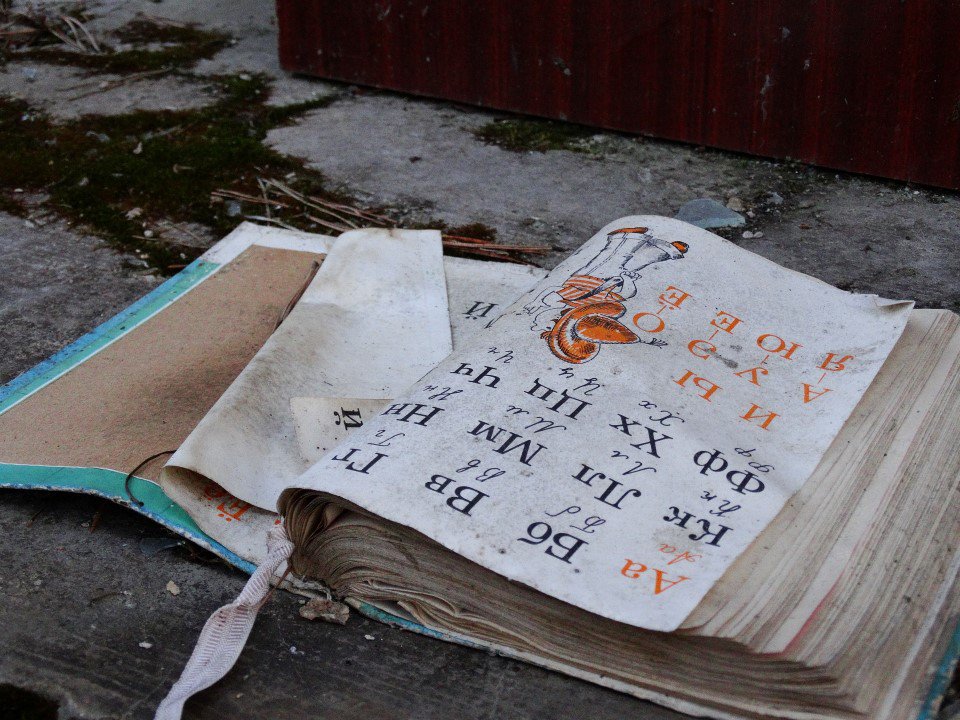 Аа Бб Вв Гг
Аа Бб Вв Гг
Кк Лл Мм Нн
Кк Лл Мм Нн
Фф Хх Цц Чч
Фф Хх Цц Чч
И Ы
А У Э О
Я Ю Е Ё
Й
й
Её